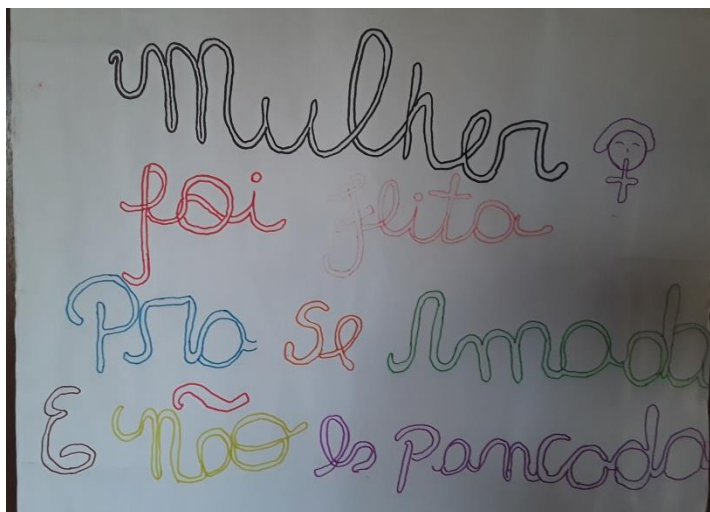 Mulher
foi feita
Pra se Amada
E Não Es Pancada